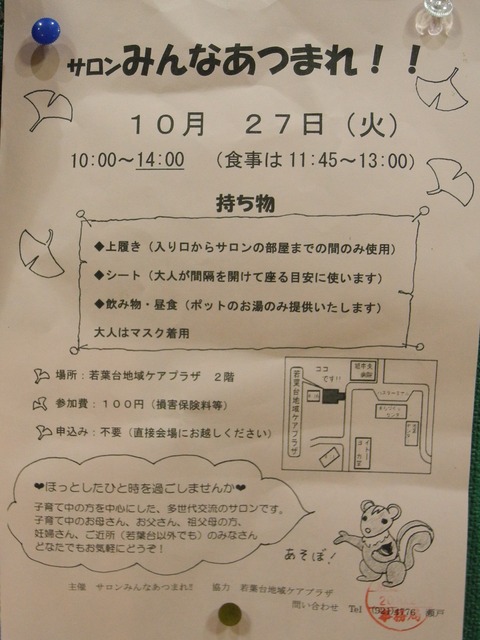 サロンみんなあつまれ！！
10月　27日（火）
10:00～14:00　（食事は11:45～13:00）
持ち物
◆上履き（入り口からサロンの部屋までの間のみ使用）
◆シート（大人が間隔を開けて座る目安に使います）
◆飲み物・昼食（ポットのお湯のみ提供いたします）
大人はマスク着用
場所：若葉台地域ケアプラザ　２階
参加費：１００円（損害保険料等）
申込み：不要（直接会場にお越しください）
ココ
です!!
若葉台地域ケアプラザ
❤ほっとしたひと時を過ごしませんか❤
子育て中の方を中心にした、多世代交流のサロンです。
子育て中のお母さん、お父さん、祖父母の方、
妊婦さん、ご近所（若葉台以外でも）のみなさん
どなたでもお気軽にどうぞ！
あそぼ！
主催　サロンみんなあつまれ!!　協力　若葉台地域ケアプラザ
問い合わせ　Tel 瀬戸